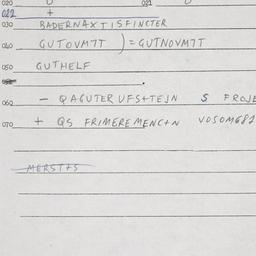 020 021
022 +
030 BADERNAXTISFINCTER
040 GUTOVM7T ) = GUTNOVM7T
050 GUTHELF
060 - QAGUTER UFS++EJN S FROJE
070 + QS FRIMERE MENC+N VOSOM682
MERST+S